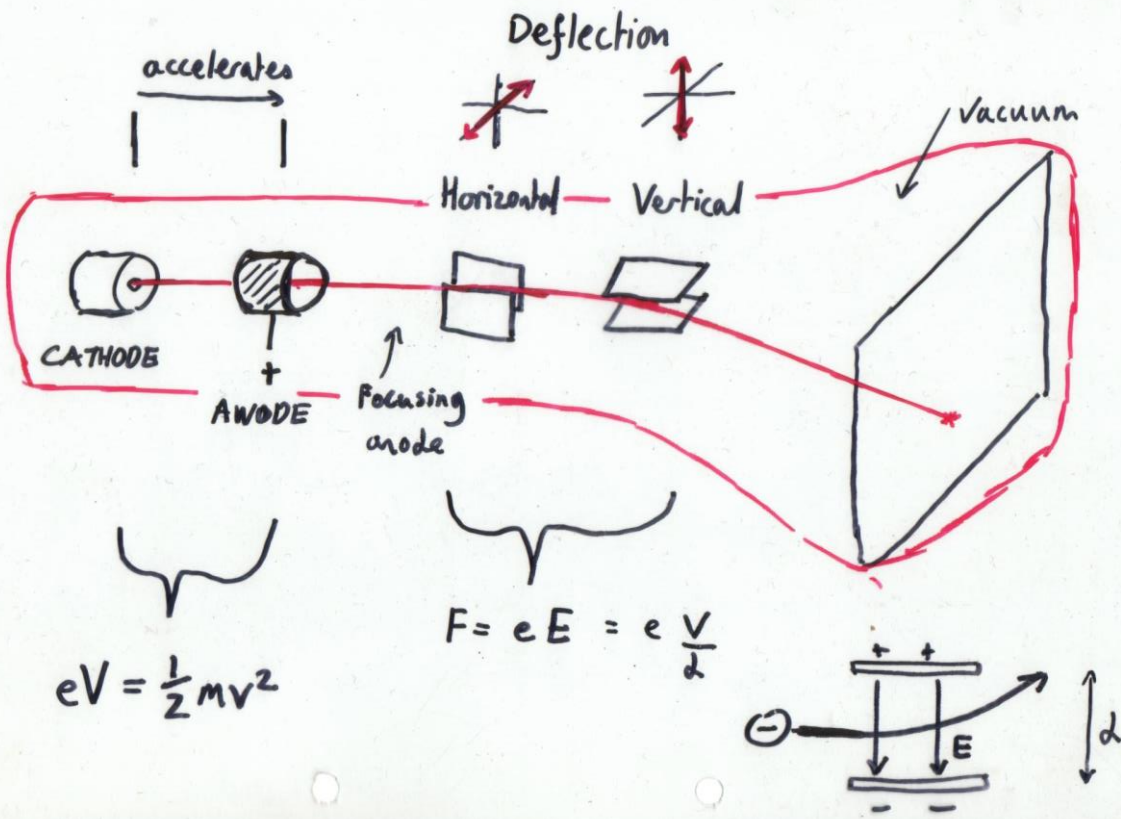 Deflection
accelerates
vacuum
Horizontal
Vertical
CATHODE
+
ANODE
Focusing
anode
eV = 1/2 mv²
F = e E = e V/d
+ +
−
E
d
− −